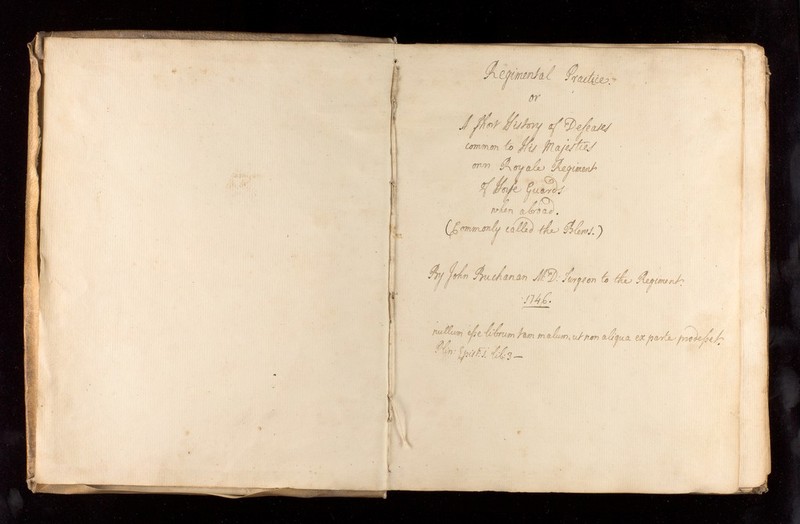 Regimental Practice.
or
A short History of Deseases
common to His Majesties
own Royale Regiment
of Horse Guards
when abroad.
(Commonly called the Blews.)
By John Buchanan M.D. Surgeon to the Regiment.
1746.
nullum esse librum tam malum, ut non aliqua ex parte prodesset.
Plin: Epist: lib 3 —